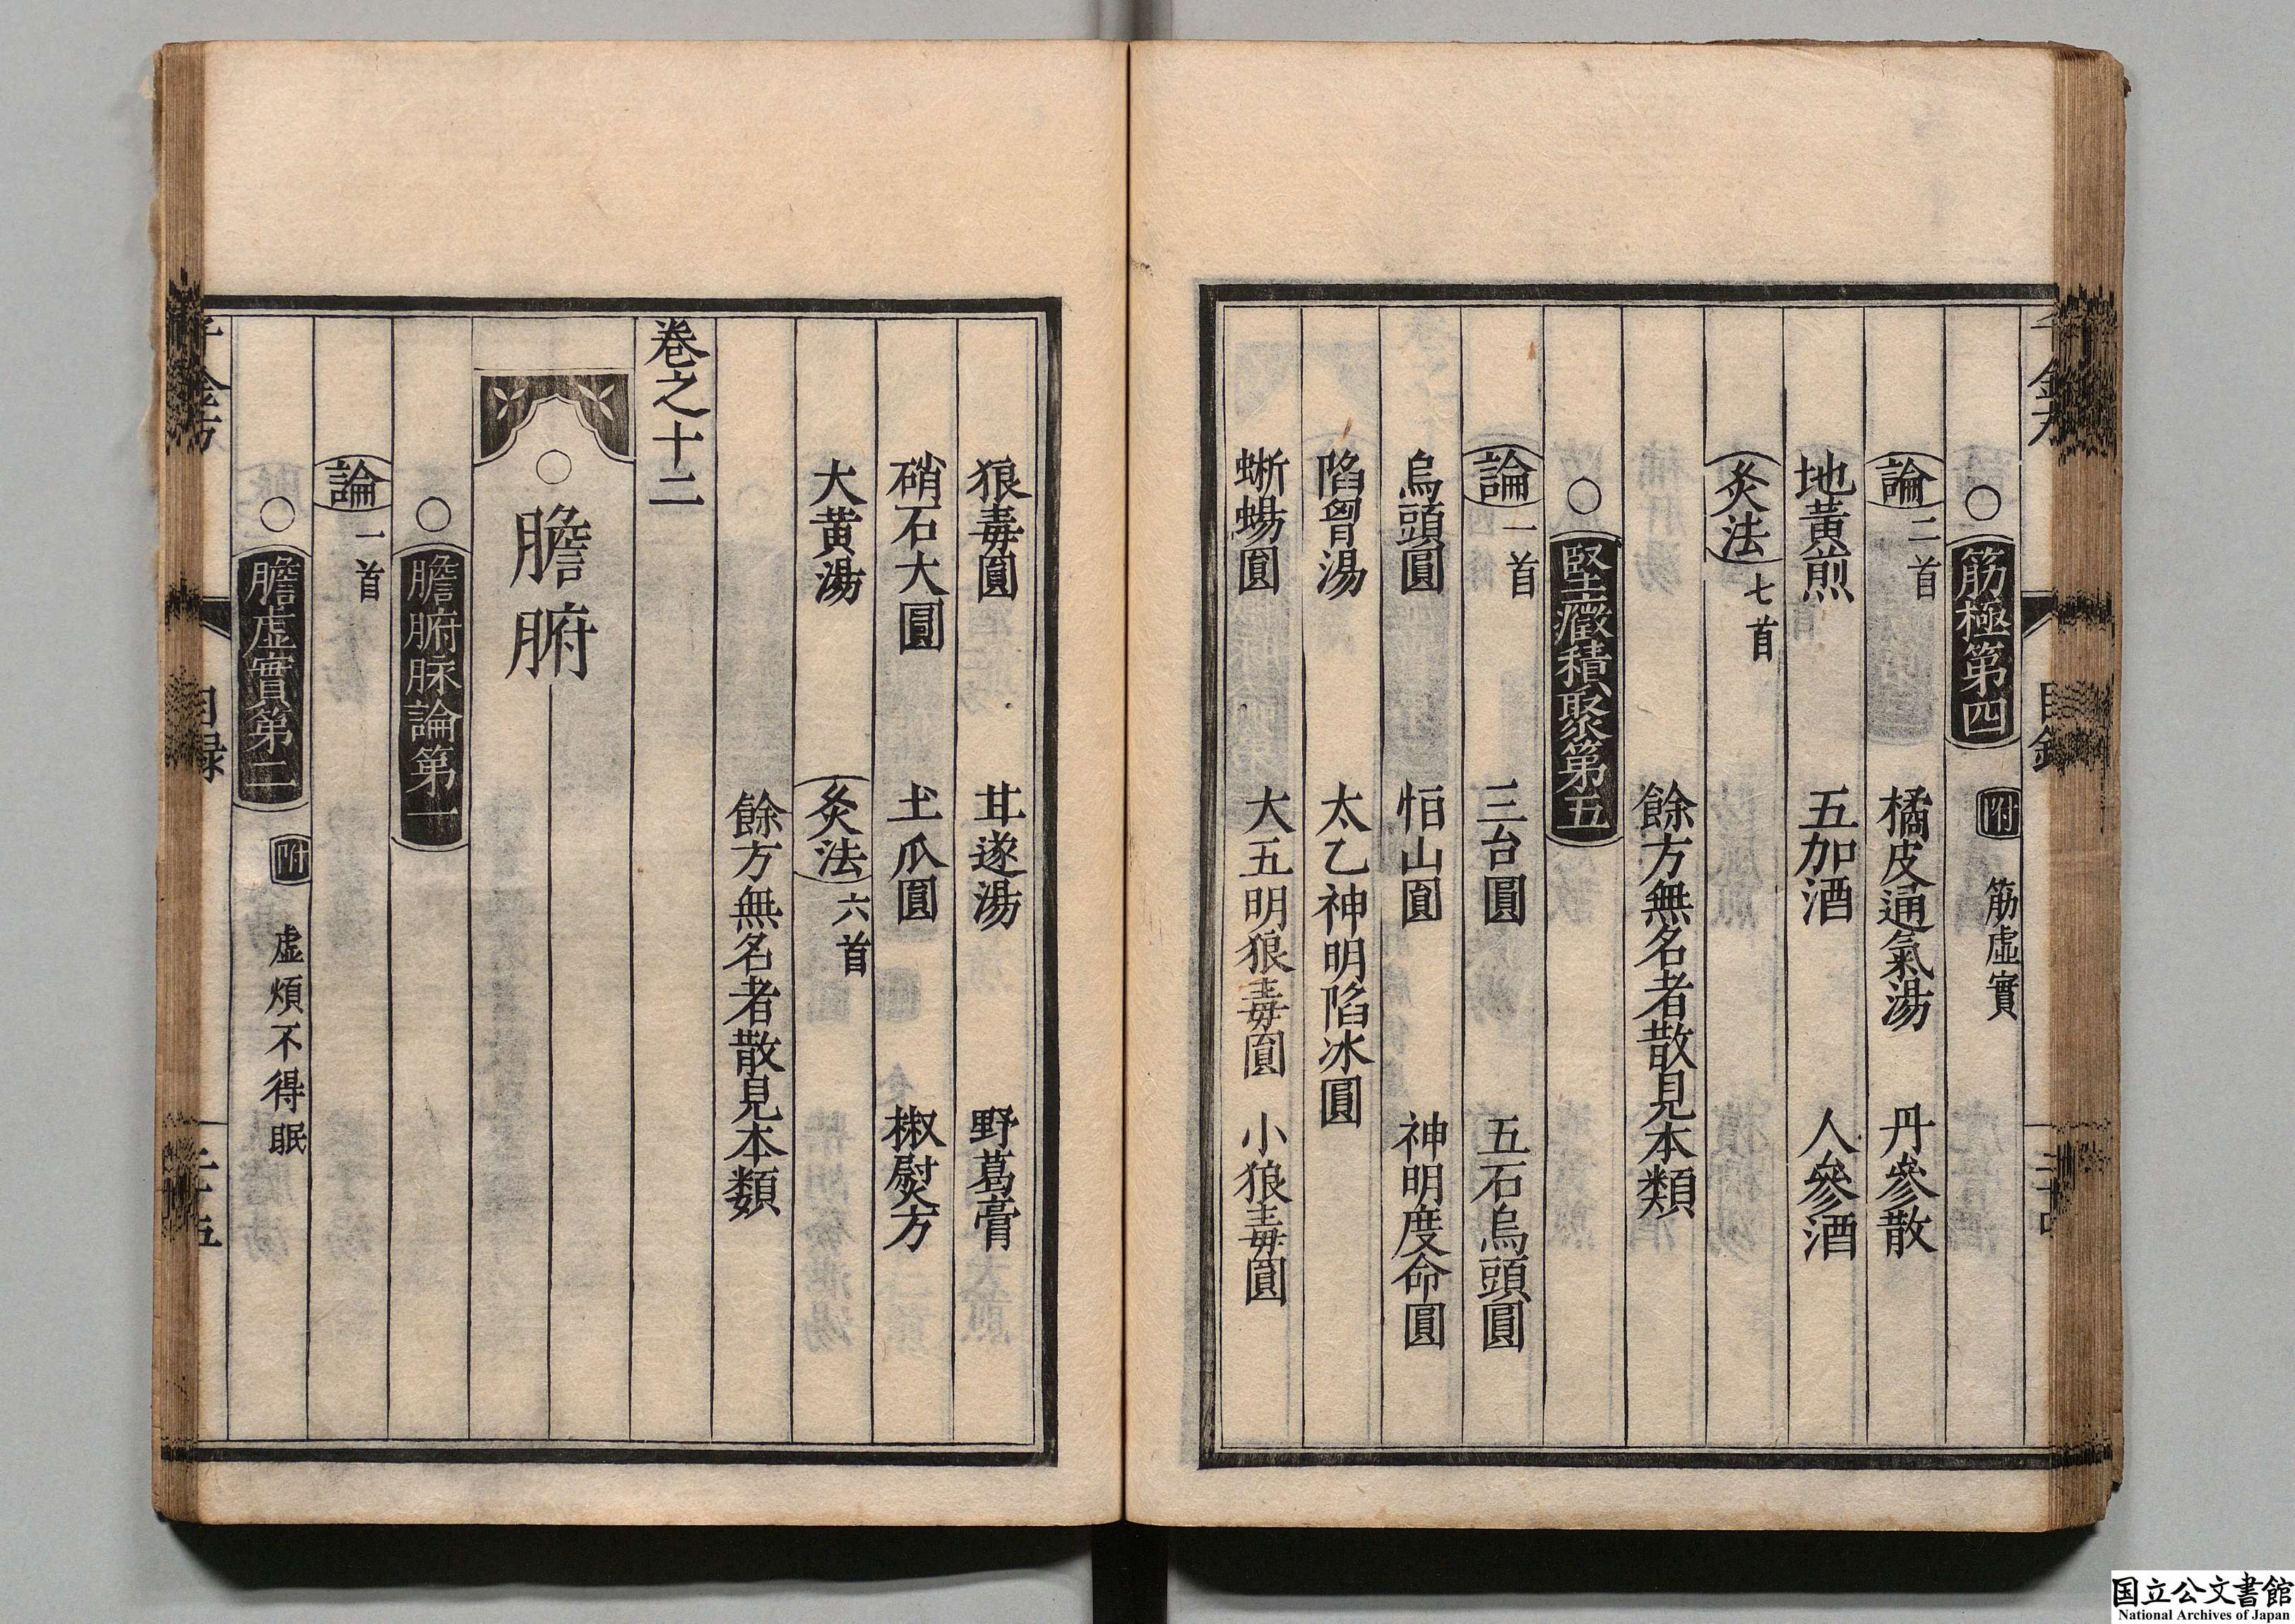 ○筋極第四 附 筋虛實
論二首 橘皮通氣湯 丹參散
地黃煎 五加酒 人參酒
炙法七首
餘方無名者散見本類
○堅癥積聚第五
論一首 三台圓 五石烏頭圓
烏頭圓 恒山圓 神明度命圓
陷胷湯 太乙神明陷冰圓
蜥蜴圓 大五明狼毒圓 小狼毒圓
狼毒圓 甘遂湯 野葛膏
硝石大圓 土瓜圓 椒熨方
大黄湯 炙法六首
餘方無名者散見本類
卷之十二
○膽腑
○膽腑脉論第一
論一首
○膽虛實第二 附 虛煩不得眠
目録
国立公文書館
National Archives of Japan